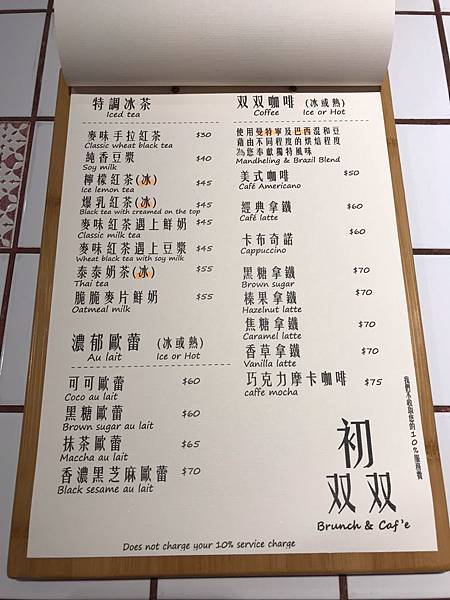 特調冰茶
Iced tea
麥味手拉紅茶 $30
Classic wheat black tea
純香豆漿 $40
Soy milk
檸檬紅茶(冰) $45
Ice lemon tea
爆乳紅茶(冰) $45
Black tea with creamed on the top
麥味紅茶遇上鮮奶 $45
Classic milk tea
麥味紅茶遇上豆漿 $45
Wheat black tea with soy milk
泰泰奶茶(冰) $55
Thai tea
脆脆麥片鮮奶 $55
Oatmeal milk
濃郁歐蕾 (冰或熱)
Au lait Ice or Hot
可可歐蕾 $60
Coco au lait
黑糖歐蕾 $60
Brown sugar au lait
抹茶歐蕾 $65
Maccha au lait
香濃黑芝麻歐蕾 $70
Black sesame au lait
双双咖啡 (冰或熱)
Coffee Ice or Hot
使用曼特寧及巴西溫和豆
藉由不同程度的烘焙程度
為您奉獻獨特風味
Mandheling & Brazil Blend
美式咖啡 $50
Café Americano
經典拿鐵 $60
Café latte
卡布奇諾 $60
Cappuccino
黑糖拿鐵 $70
Brown sugar
榛果拿鐵 $70
Hazelnut latte
焦糖拿鐵 $70
Caramel latte
香草拿鐵 $70
Vanilla latte
巧克力摩卡咖啡 $75
caffe mocha
我們不收取您的10%服務費
初
双双
Brunch & Caf'e
Does not charge your 10% service charge